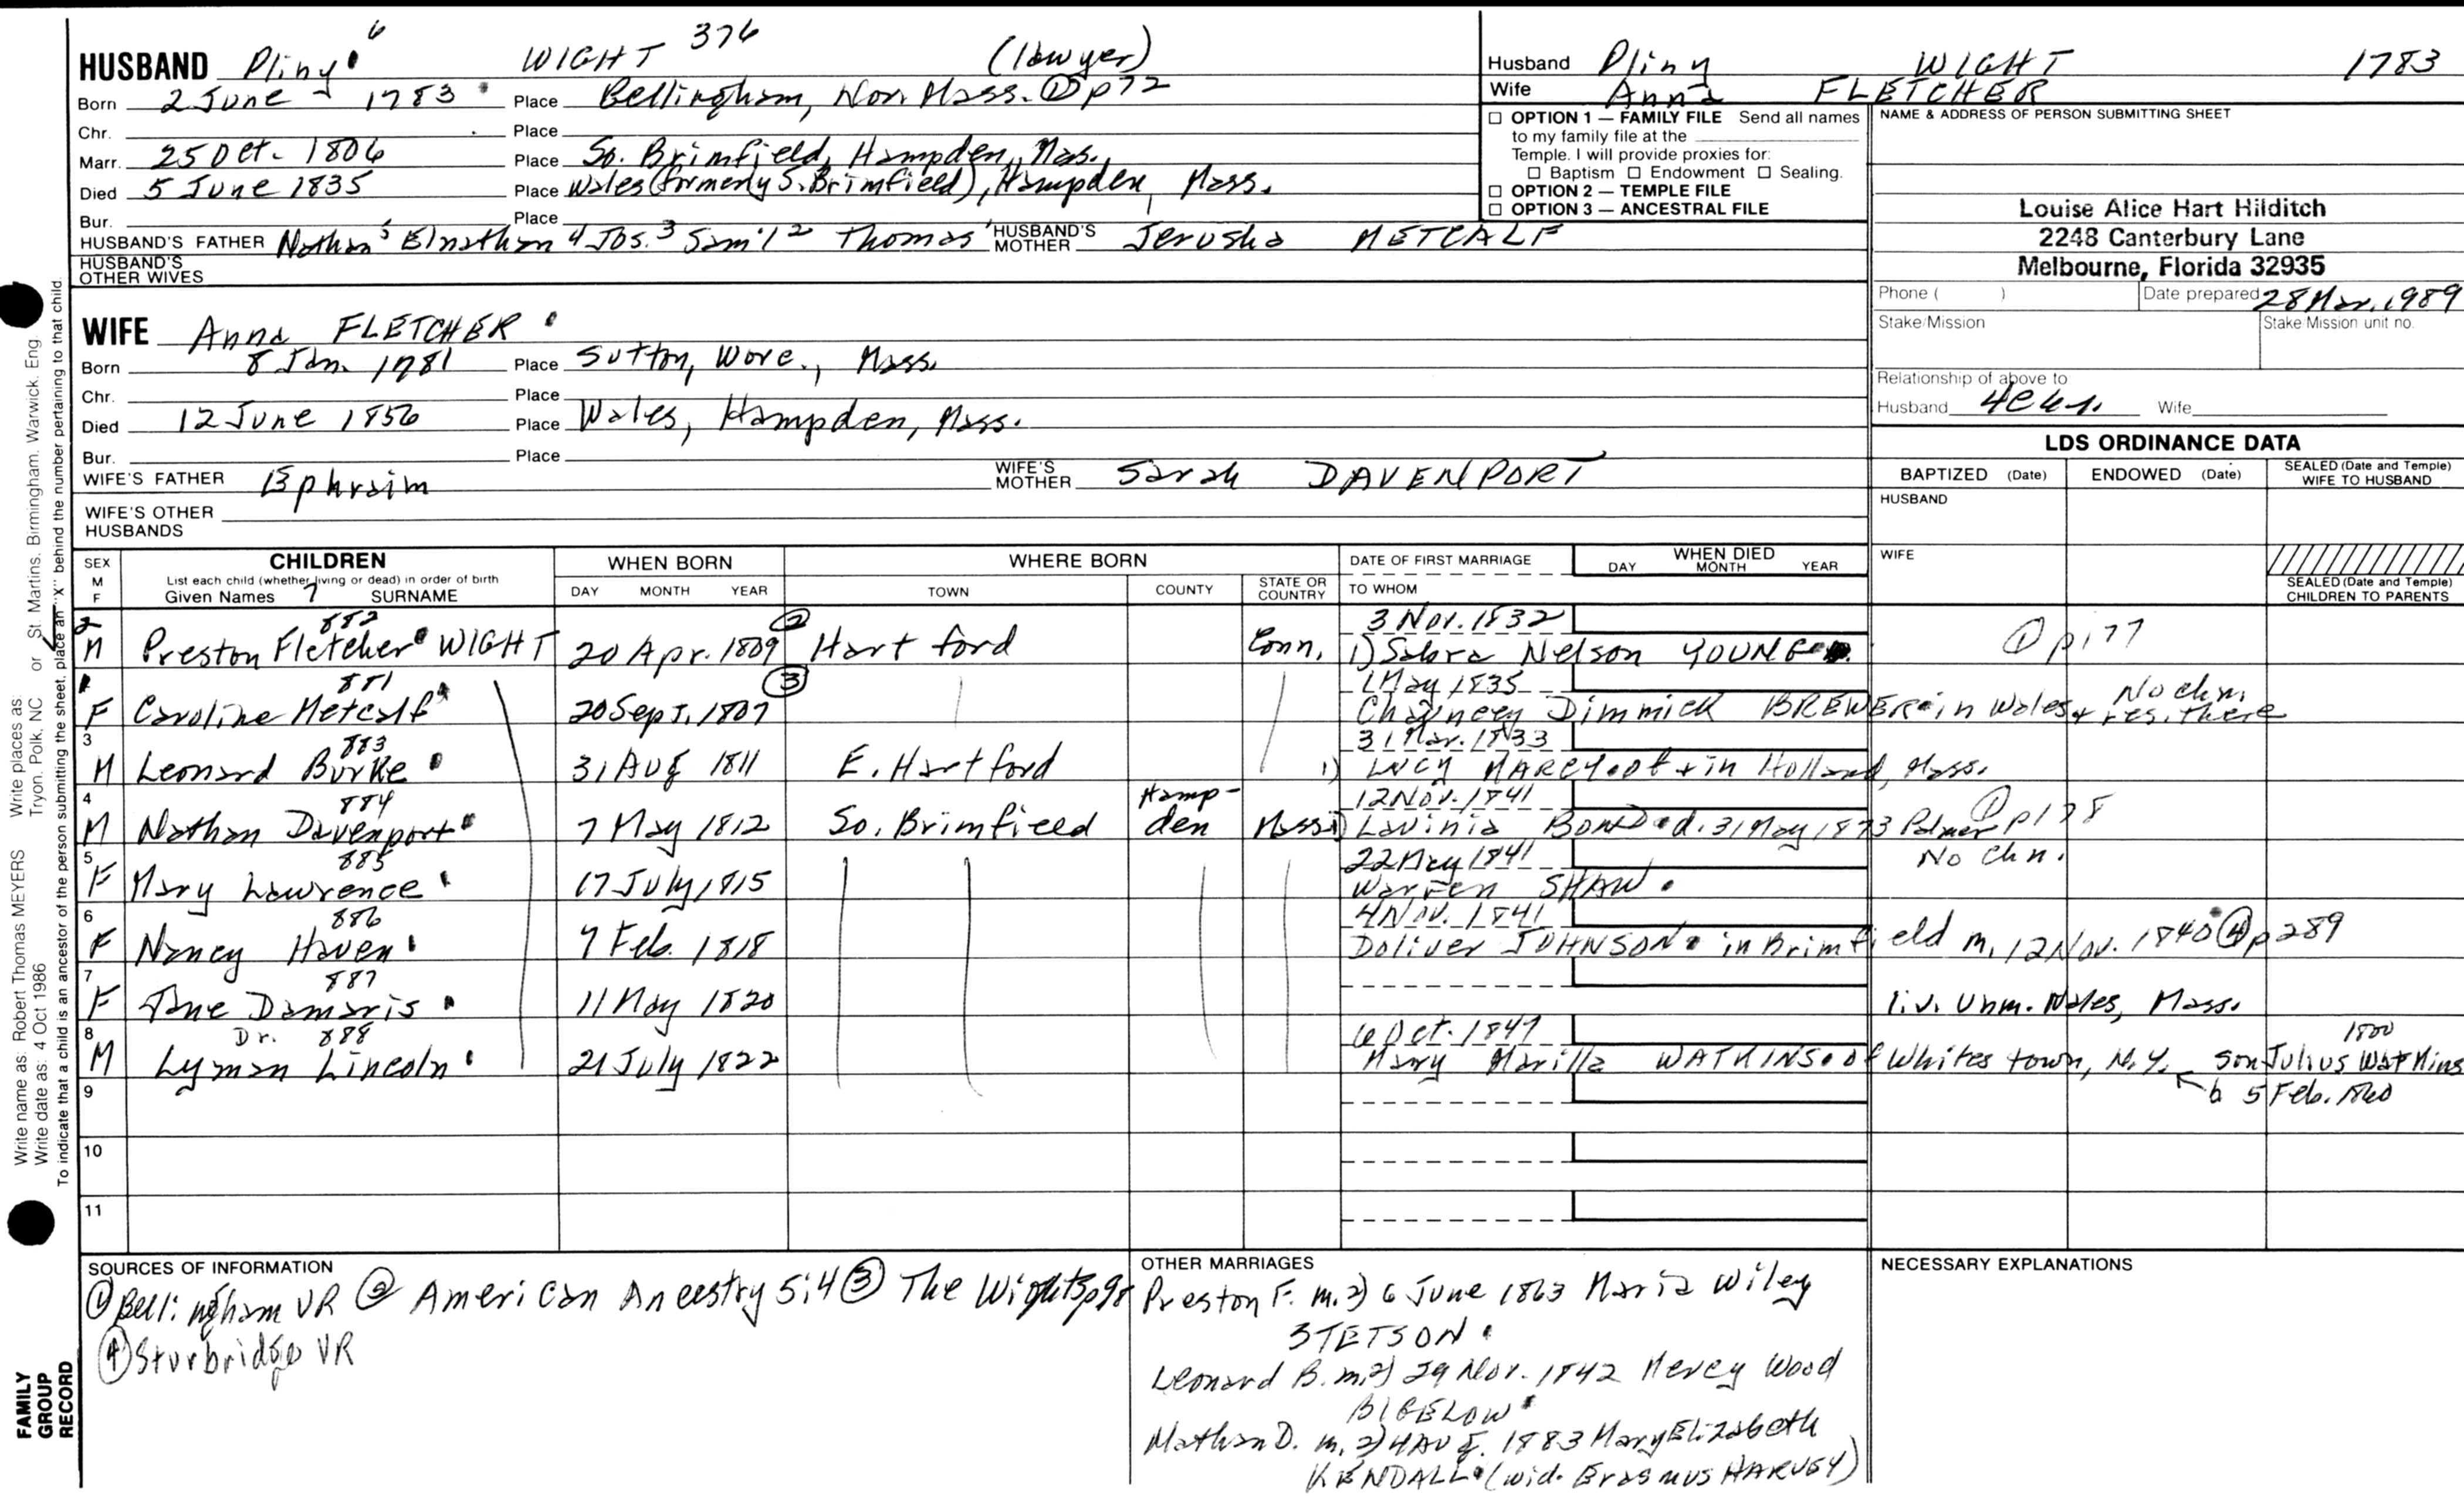 HUSBAND Pliny 6 WIGHT 376 (lawyer)
Born 2 June 1783 Place Bellingham, Nor. Mass. ① p72
Chr. Place
Marr. 25 Oct. 1806 Place So. Brimfield, Hampden, Mas.
Died 5 June 1835 Place Wales (formerly S. Brimfield), Hampden, Mass.
Bur. Place
HUSBAND'S FATHER Nathan 5 Elnathan 4 Jos. 3 Sam'l 2 Thomas 1 HUSBAND'S MOTHER Jerusha METCALF
HUSBAND'S OTHER WIVES
Husband Pliny WIGHT 1783
Wife Anna FLETCHER
☐ OPTION 1 — FAMILY FILE Send all names
to my family file at the
Temple. I will provide proxies for:
☐ Baptism ☐ Endowment ☐ Sealing.
☐ OPTION 2 — TEMPLE FILE
☐ OPTION 3 — ANCESTRAL FILE
NAME & ADDRESS OF PERSON SUBMITTING SHEET
Louise Alice Hart Hilditch
2248 Canterbury Lane
Melbourne, Florida 32935
Phone ( ) Date prepared 28 Mar. 1989
Stake/Mission Stake/Mission unit no.
Relationship of above to
Husband Wife
WIFE Anna FLETCHER
Born 8 Jan. 1781 Place Sutton, Worc., Mass.
Chr. Place
Died 12 June 1856 Place Wales, Hampden, Mass.
Bur. Place
WIFE'S FATHER Ephraim WIFE'S MOTHER Sarah DAVENPORT
WIFE'S OTHER HUSBANDS
LDS ORDINANCE DATA
BAPTIZED (Date) ENDOWED (Date) SEALED (Date and Temple) WIFE TO HUSBAND
HUSBAND
WIFE
SEALED (Date and Temple) CHILDREN TO PARENTS
SEX M F
CHILDREN
List each child (whether living or dead) in order of birth
Given Names 7 SURNAME
WHEN BORN
DAY MONTH YEAR
WHERE BORN
TOWN COUNTY STATE OR COUNTRY
DATE OF FIRST MARRIAGE
TO WHOM
WHEN DIED
DAY MONTH YEAR
2 882 ② 3 Nov. 1832
M Preston Fletcher WIGHT 20 Apr. 1809 Hartford Conn. 1) Nelson YOUNG ① p177
1 881 ③ 1 May 1835 No chn.
F Caroline Metcalf 20 Sept. 1807 Chauncey Dimmick BREWER in Wales & res. there
3 883 31 Mar. 1833
M Leonard Burke 31 Aug 1811 E. Hartford 1) Lucy MARCY of & in Holland, Mass.
4 884 Hamp- 12 Nov. 1841
M Nathan Davenport 7 May 1812 So. Brimfield den Mass 1) Lavinia BOND d. 31 May 1873 Palmer ① p178
5 885 22 May 1841 No chn.
F Mary Lawrence 17 July 1815 Warren SHAW
6 886 4 Nov. 1841
F Nancy Haven 7 Feb. 1818 Doliver JOHNSON in Brimfield m. 12 Nov. 1840 ④ p289
7 887
F Jane Damaris 11 May 1820 liv. unm. Wales, Mass.
8 Dr. 888 6 Oct. 1847 1800
M Lyman Lincoln 21 July 1822 Mary Marilla WATKINS of Whitestown, N.Y. son Julius Watkins
9 b 5 Feb. 1860
10
11
SOURCES OF INFORMATION
① Bellingham VR ② American Ancestry 5:4 ③ The Wights p98
④ Sturbridge VR
OTHER MARRIAGES
Preston F. m. 2) 6 June 1863 Maria Wiley
STETSON
Leonard B. m. 2) 29 Nov. 1842 Mercy Wood
BIGELOW
Nathan D. m. 2) 4 Aug. 1883 Mary Elizabeth
KENDALL (wid. Erasmus HARVEY)
NECESSARY EXPLANATIONS
Write name as: Robert Thomas MEYERS Write places as: Tryon. Polk, NC or St. Martins. Birmingham. Warwick. Eng
Write date as: 4 Oct 1986
To indicate that a child is an ancestor of the person submitting the sheet, place an "X" behind the number pertaining to that child.
FAMILY GROUP RECORD